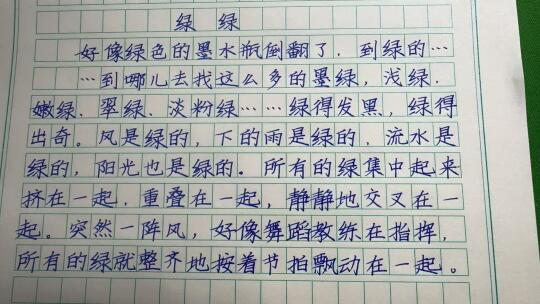 绿 绿
好像绿色的墨水瓶倒翻了.到绿的…
…到哪儿去找这么多的墨绿,浅绿.
嫩绿.翠绿.淡粉绿……绿得发黑,绿得
出奇。风是绿的,下的雨是绿的.流水是
绿的,阳光也是绿的。所有的绿集中起来
挤在一起.重叠在一起,静静地交叉在一
起。突然一阵风,好像舞蹈教练在指挥,
所有的绿就整齐地按着节拍飘动在一起。